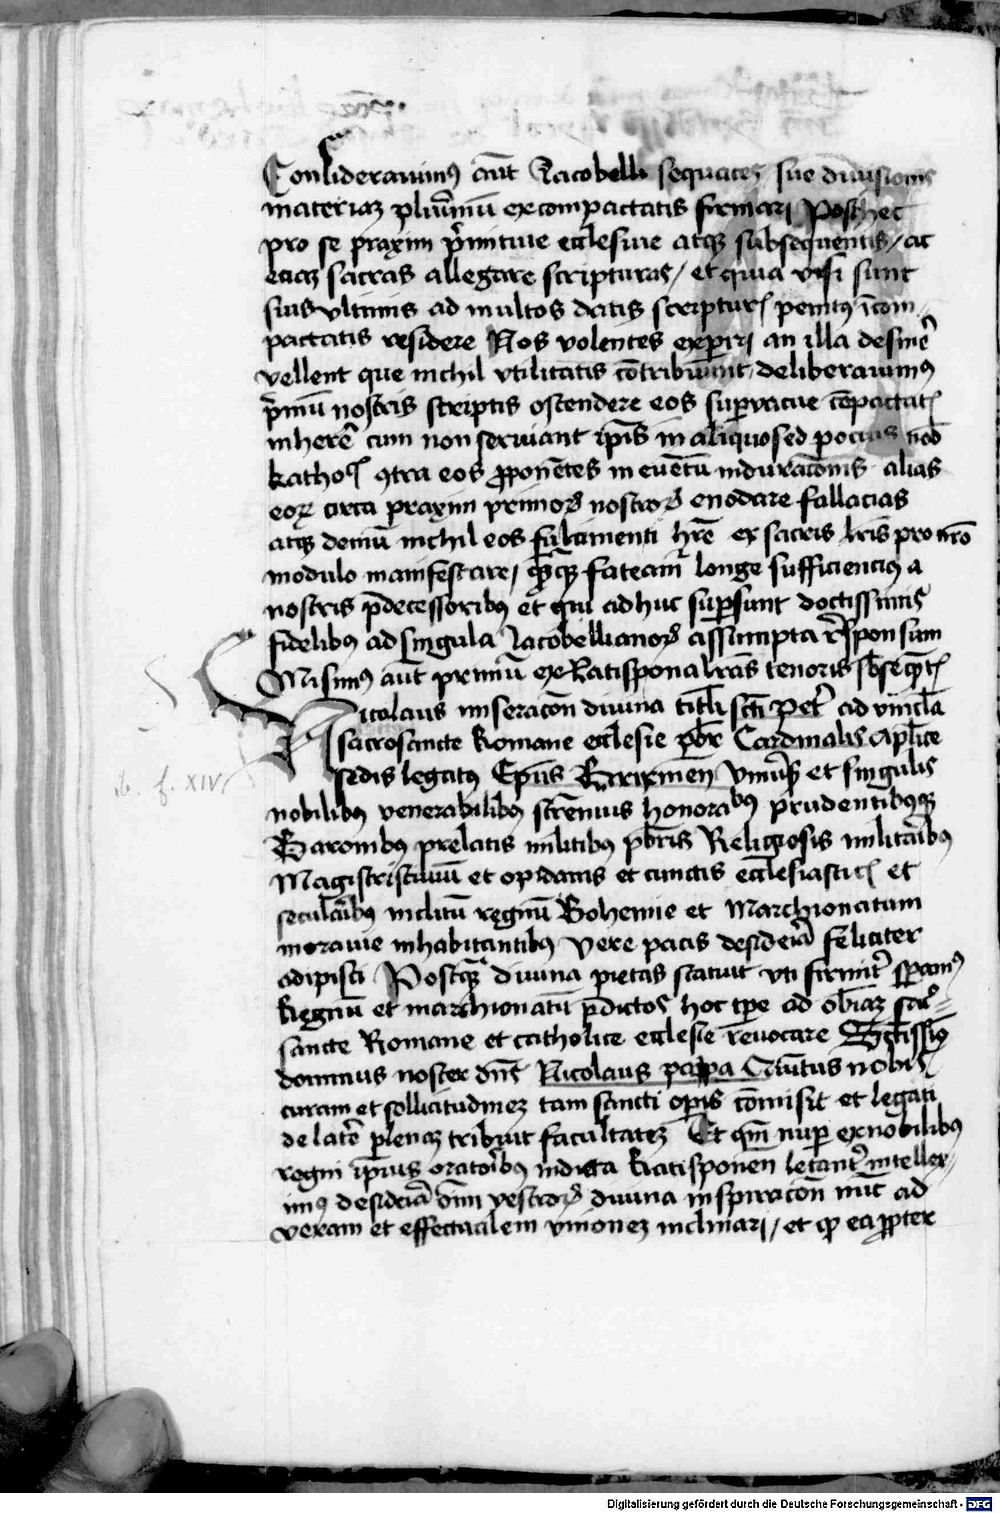 Considerauimus aut Jacobelli sequaces sue diuisionis
materiaz plurimu ex compactatis firmari Posthec
pro se praxim primitiue ecclesiae atq subsequentis / ac
etiaz sacras allegare scripturas / et quia visi sunt
suis vltimis ad multos datis scriptur penitus incom
pactatis residere Nos volentes experiri an illa desinere
vellent que nichil vtilitatis contribuunt deliberauimus
primu nostris scriptis ostendere eos superuacue compactat
inhere cum non seruiant ipis in aliquo sed pocius nob
katho contra eos proponetes in euentu induracionis alias
eor circa praxim primor nostror enodare fallacias
atq demu nichil eos fulcimenti hre ex sacris lris pro nro
modulo manifestare / quaq fateamur longe sufficiencius a
nostris predecessoribus et qui adhuc supersunt doctissimis
fidelibus ad singula Jacobellianor assumpta responsum
Misimus aut primu ex Ratispona lras tenoris subsequet
Nicolaus miseracon diuina tituli scti Petri ad vincla
sacrosancte Romane ecclesie pbr Cardinalis Aplice
sedis legatus Epus Brixinen Vniuersis et singulis
nobilibus venerabilibus strenuis honorabus prudentibusq
Baronibus prelatis militibus pbris Religiosis militaribus
Magistris ciuiu et opidanis et cunctis ecclesiastic et
secularibus inclitu regnu Bohemie et Marchionatum
morauie inhabitantibus Vere pacis desideria feliciter
adipisci Postquam diuina pietas statuit vti firmiter speramus
Regnu et marchionatu predictos hoc tpe ad obiaz
sancte Romane et catholice ecclesie reuocare Sctissimus
dominus noster dns Nicolaus papa Quintus nobis
curam et sollicitudinez tam sancti opis comisit et legati
de latere plenaz tribuit facultatez Et qm nuper ex nobilibus
regni ipius oratoribus in dieta Ratisponen letanter intellex
imus desideria dum vestror diuina inspiracon nuc ad
veram et effectualem vnionez inclinari / et quod ea propter
ib. f. XIV
Digitalisierung gefördert durch die Deutsche Forschungsgemeinschaft - DFG